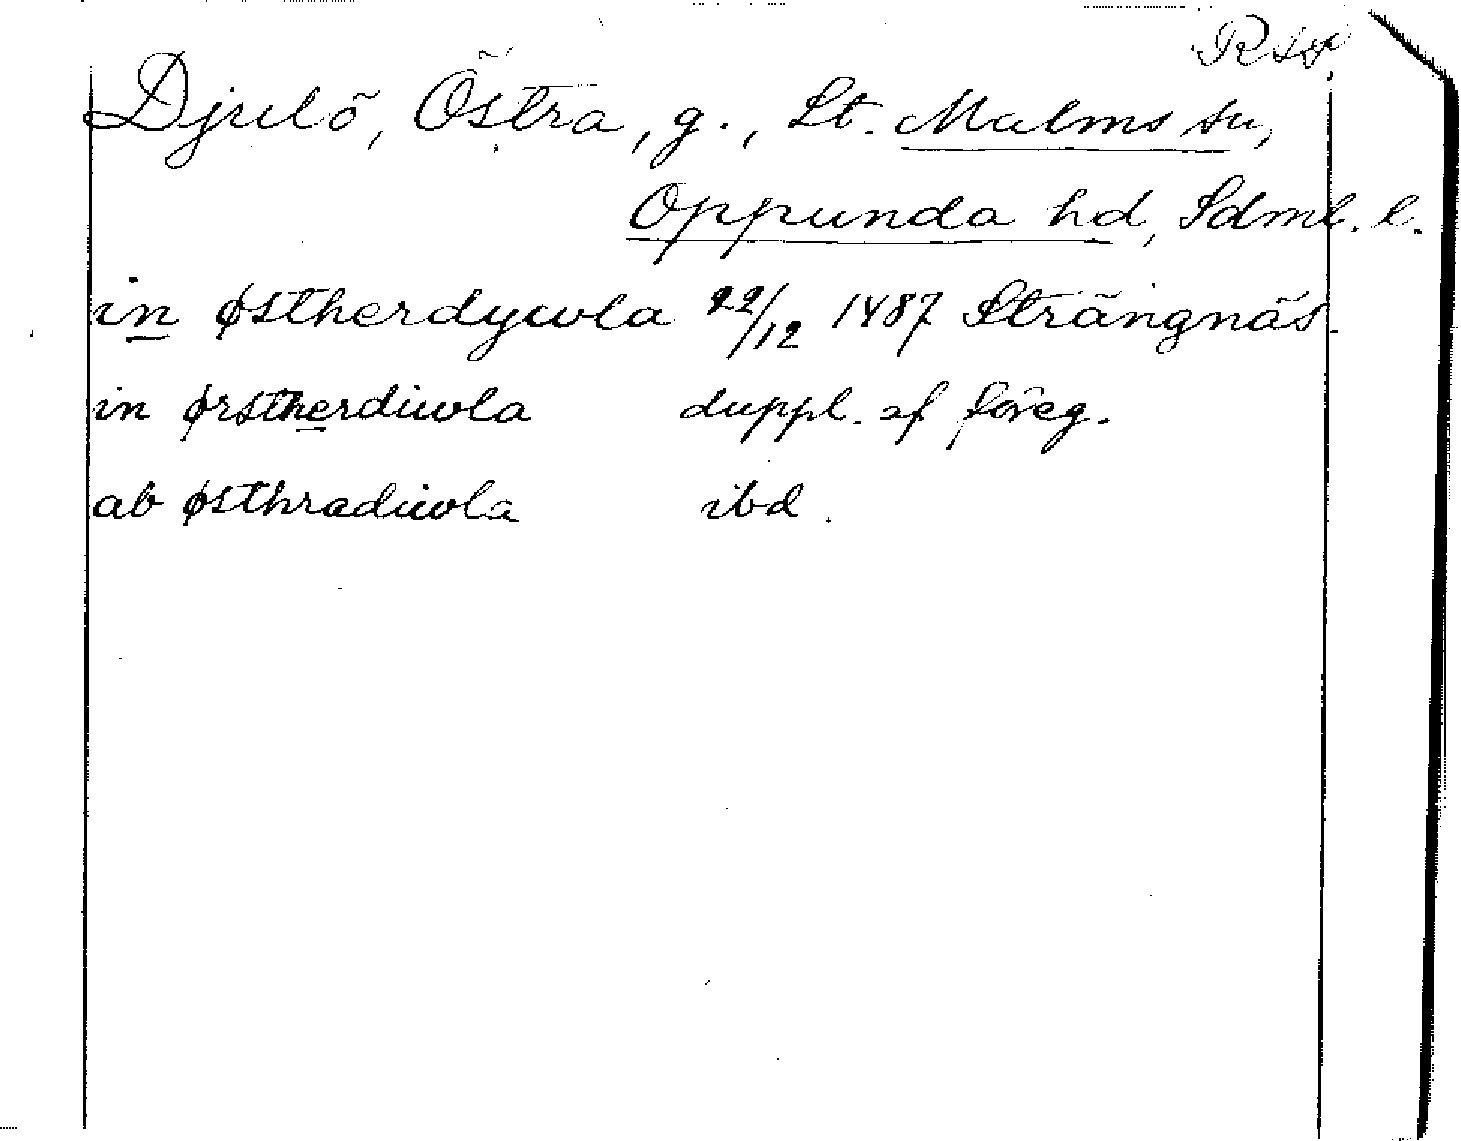 Rsv.
Djulö, Östra, g., St. Malms sn,
Oppunda hd, Sdml. l.
in østherdywla 22/12 1487 Strängnäs.
in ørstherdiwla duppl. af föreg.
ab østhradiwla ibd.